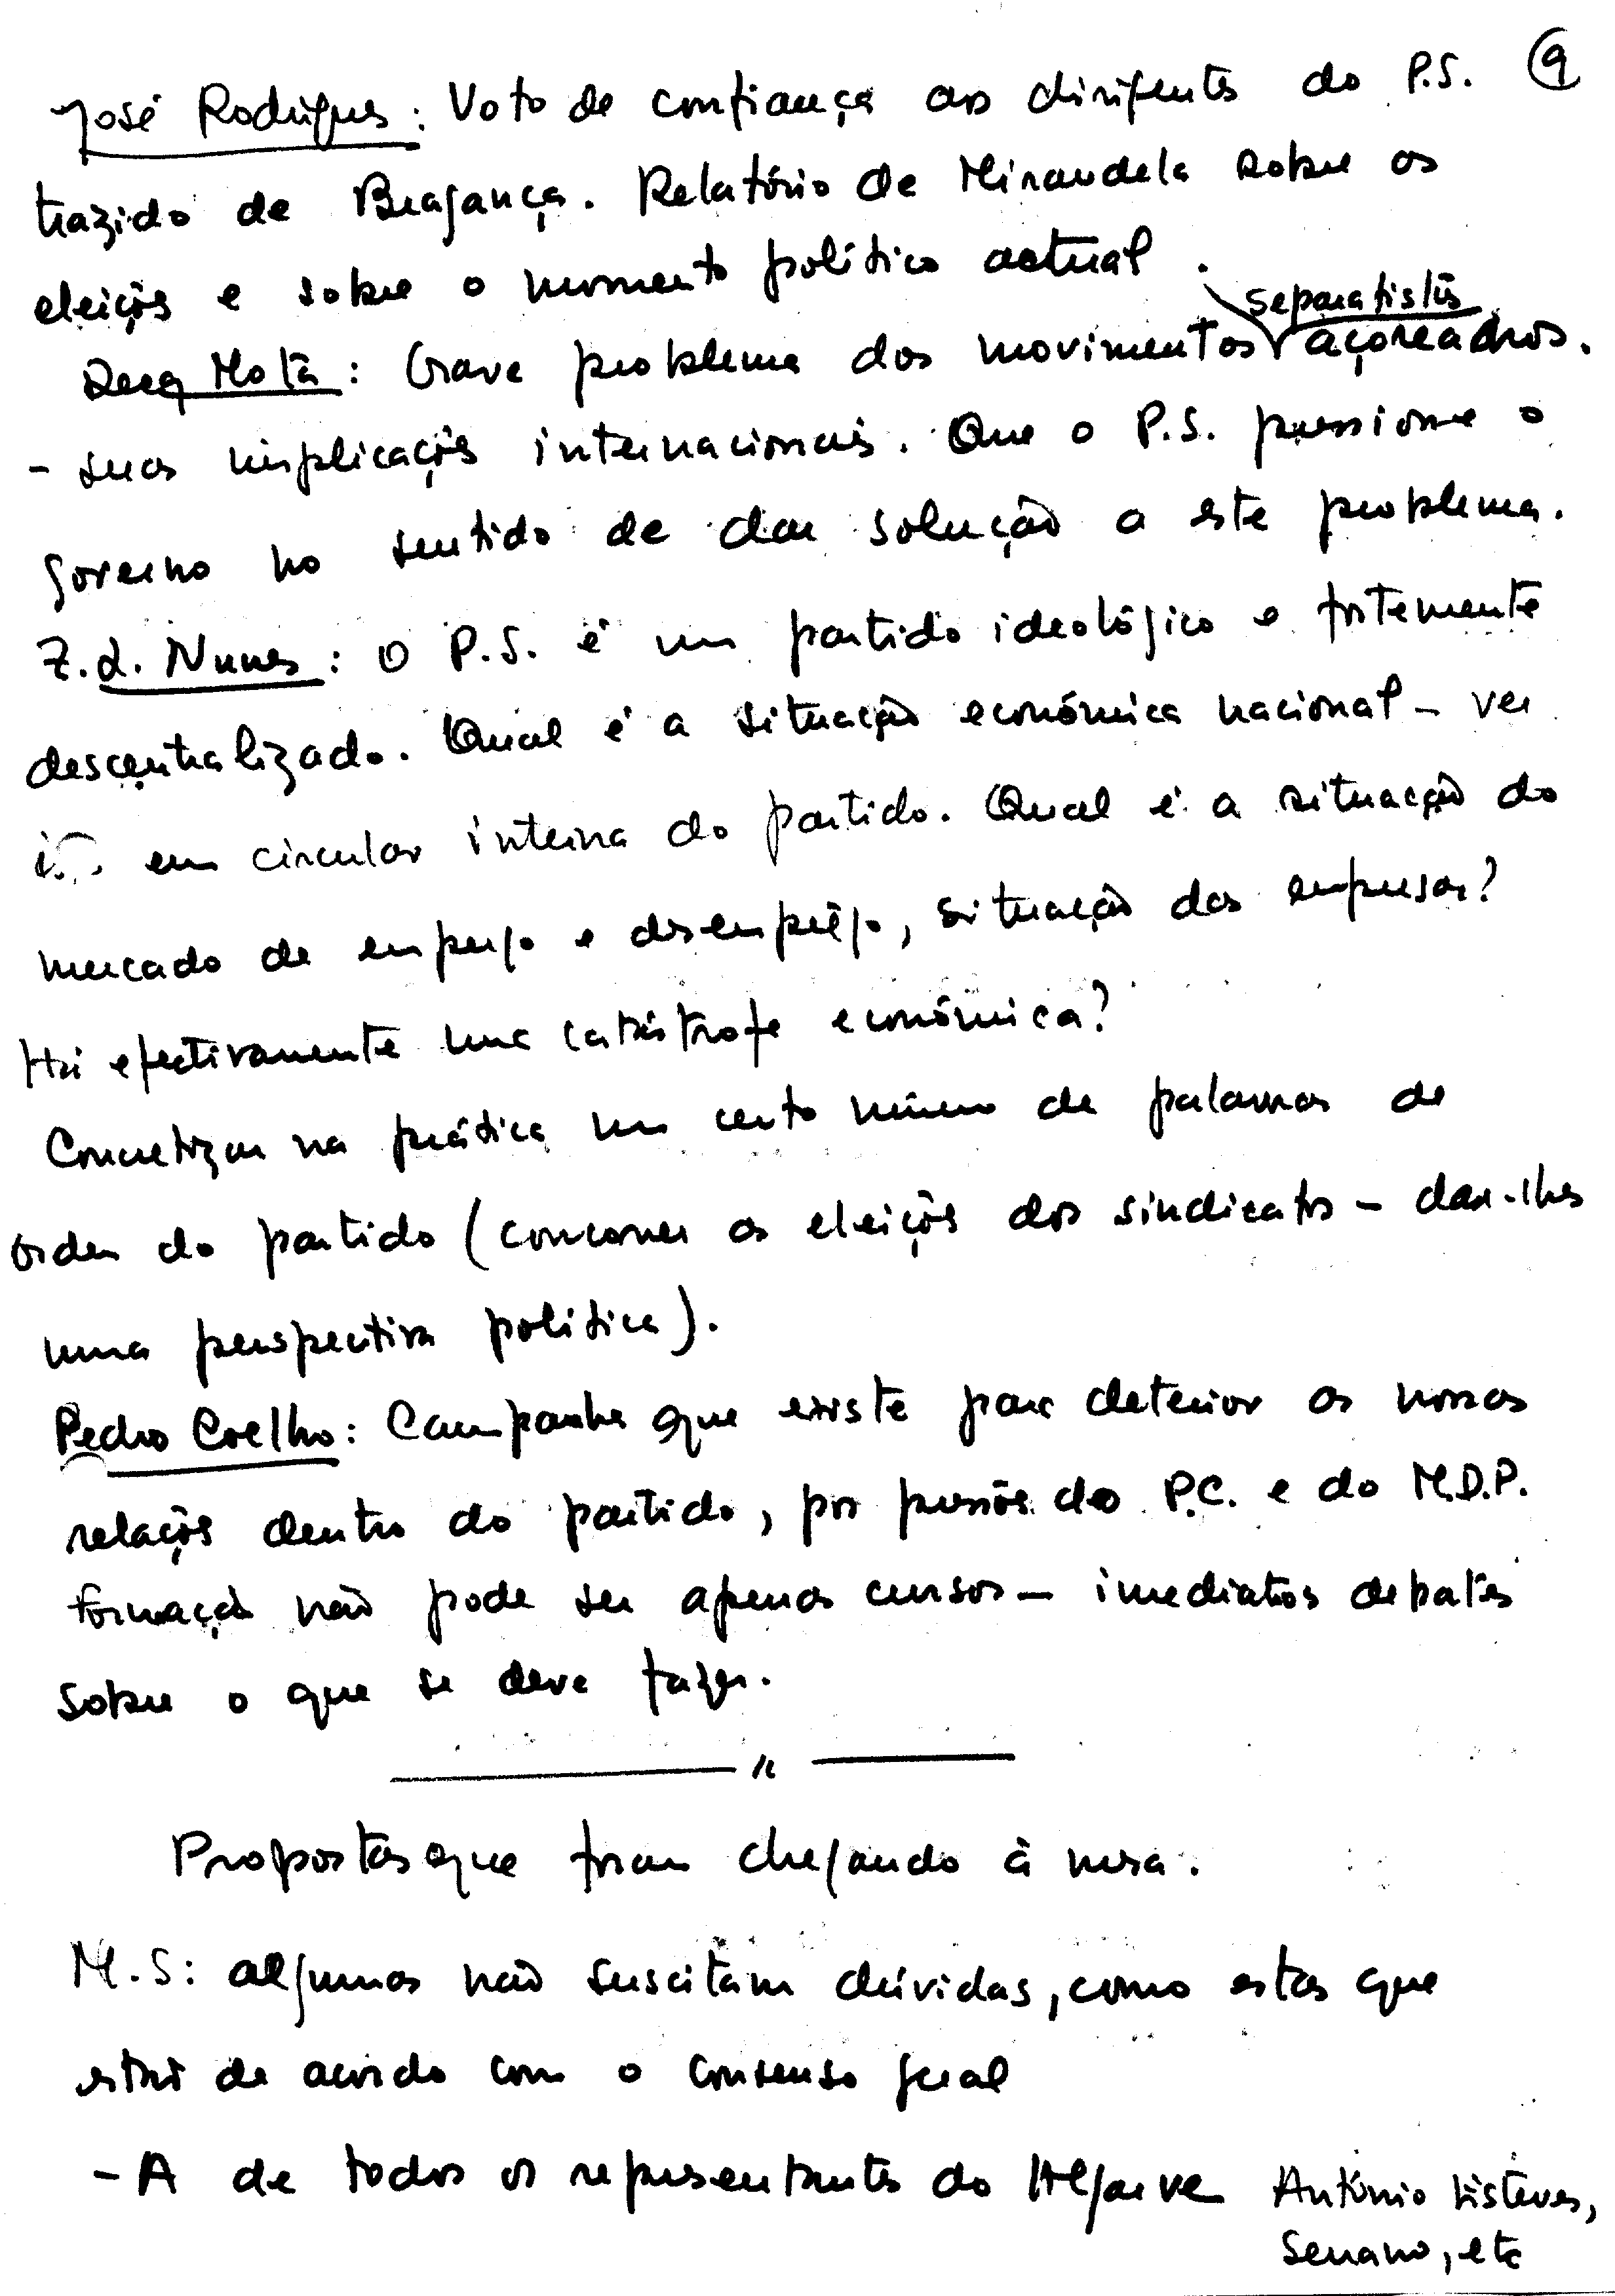 José Rodrigues: Voto de confiança aos dirigentes do P.S. 9
trazido de Bragança. Relatório de Mirandela sobre as
eleições e sobre o momento político actual.
separatistas
Mota: Grave problema dos movimentos açoreanos.
- suas implicações internacionais. Que o P.S. pressione o
governo no sentido de dar solução a este problema.
Z.L. Nunes: O P.S. é um partido ideológico e fortemente
descentralizado. Qual é a situação económica nacional - ver
isto em circular interna do partido. Qual é a situação do
mercado de emprego e desemprêgo, situação das empresas?
Há efectivamente uma catástrofe económica?
Concretizar na prática um certo número de palavras de
ordem do partido (concorrer às eleições dos sindicatos - dar-lhes
uma perspectiva política).
Pedro Coelho: Campanha que existe para deterior as nossas
relações dentro do partido, por pressões do P.C. e do M.D.P.
formação não pode ser apenas cursos - imediatos debates
sobre o que se deve fazer.
Propostas que foram chegando à mesa.
M.S: algumas não suscitam dúvidas, como estas que
estão de acordo com o consenso geral
- A de todos os representantes do Algarve António Esteves,
Serrano, etc